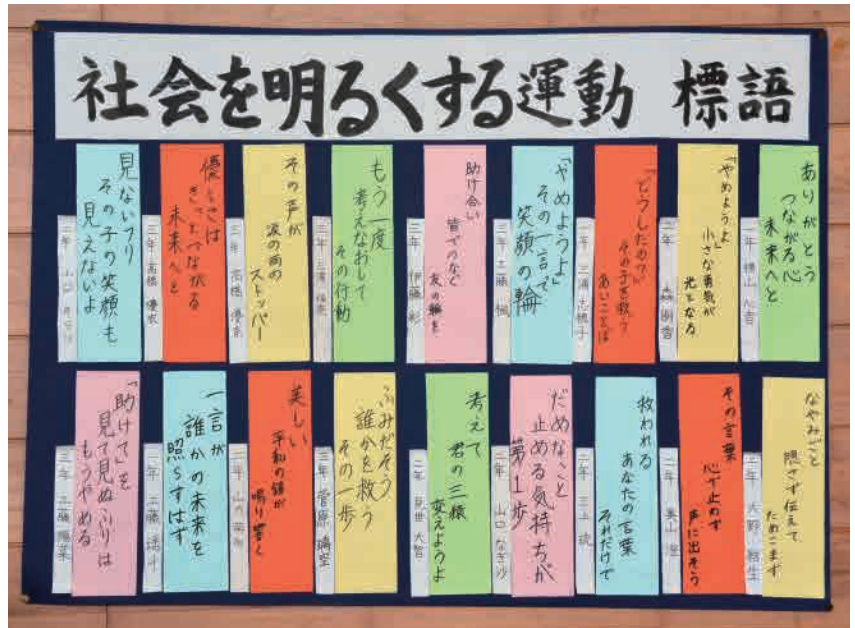 社会を明るくする運動 標語
ありがとう
つながる心
未来へと
「やめようよ」
小さな勇気が
光となる
「どうしたの?」
その子を救う
あいことば
三年 三浦 志桃子
「やめようよ」
その一言で
笑顔の輪
三年 工藤 楓
助け合い
皆でつなぐ
友の輪を
三年 伊藤 彩
もう一度
考えなおして
その行動
その声が
涙の雨の
ストッパー
三年 高橋 優奈
優しさは
きっとつながる
未来へと
三年 高橋 優衣
見ないフリ
その子の笑顔も
見えないよ
なやみごと
隠さず伝えて
ためこまず
その言葉
心で止めず
声に出そう
救われる
あなたの言葉
それだけで
だめなこと
止める気持ちが
第1歩
二年 山口 なぎ沙
考えて
君の三猿
変えようよ
ふみだそう
誰かを救う
その一歩
三年 菅原 璃空
美しい
平和の鐘が
鳴り響く
一言が
誰かの未来を
照らすはず
「助けて」を
見て見ぬふりは
もうやめる
三年 工藤 陽菜